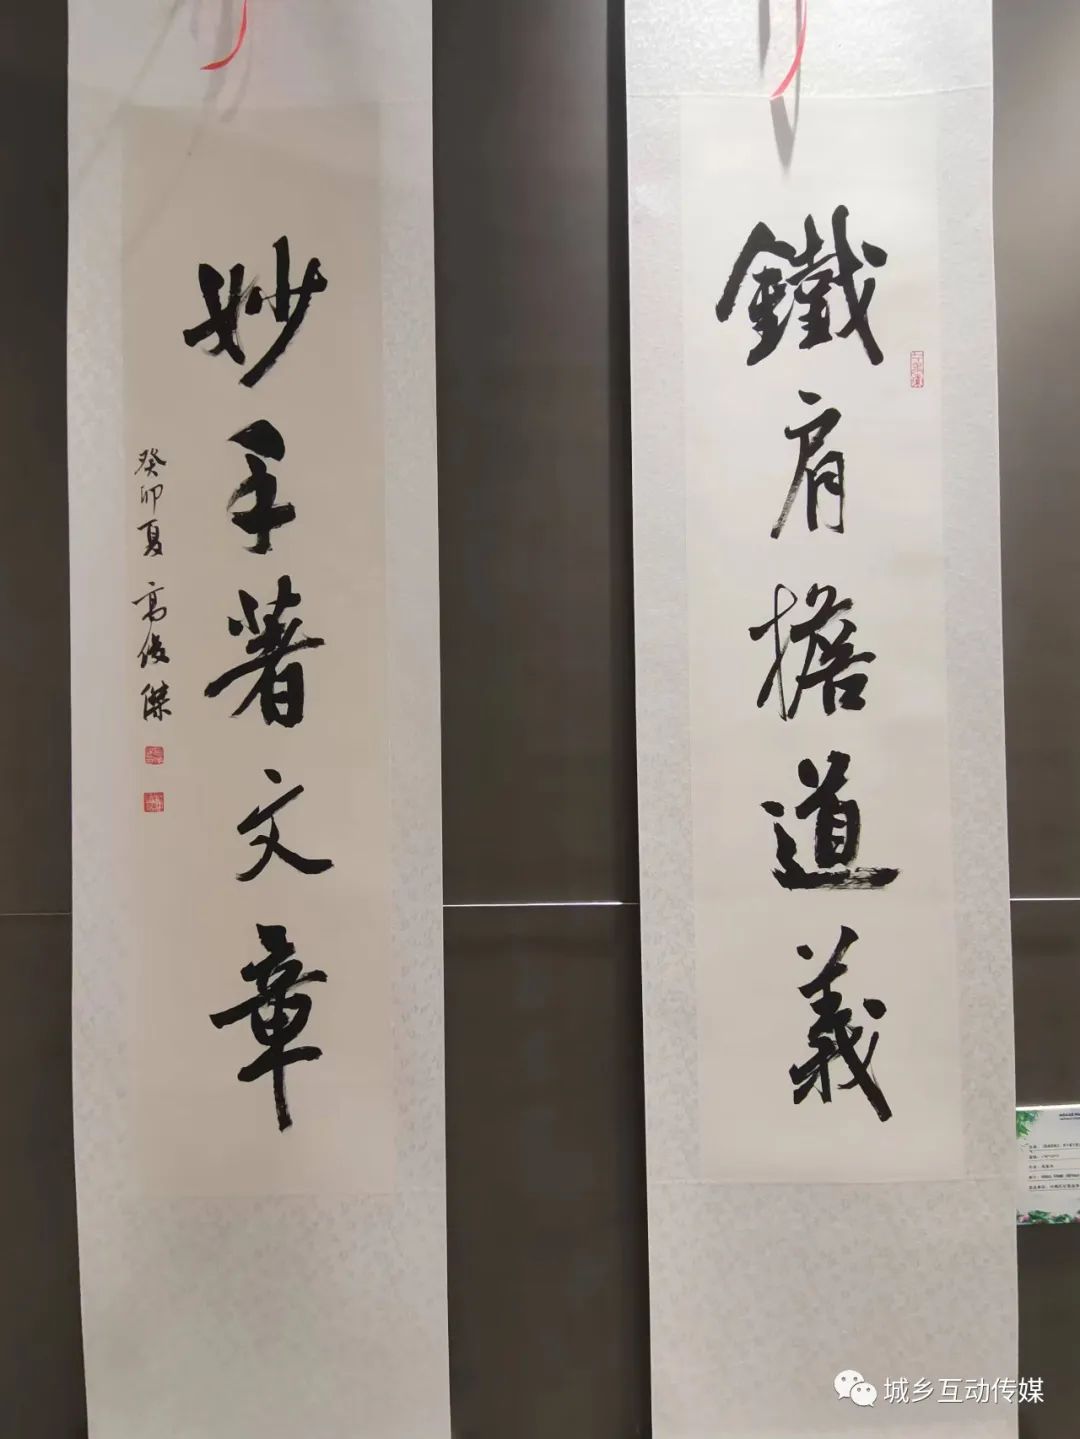 鐵肩擔道義
妙手著文章
癸卯夏 高俊傑
城乡互动传媒